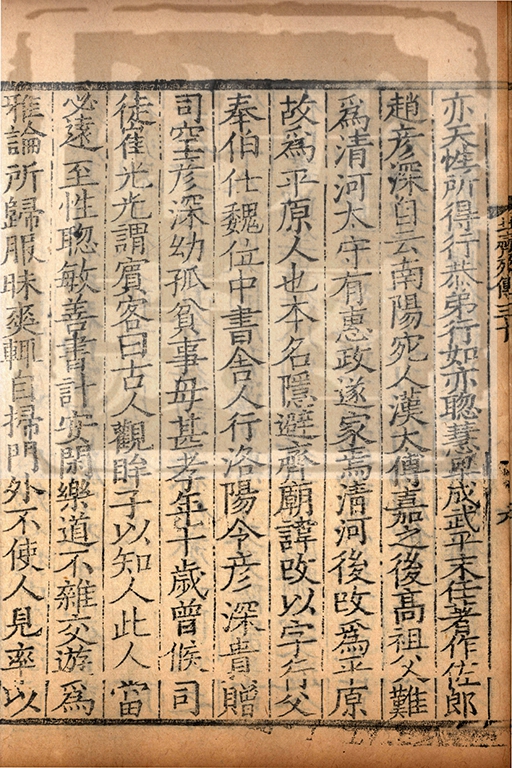 亦天性所得行恭弟行如亦聰慧早成武平末任著作佐郎
趙彦深自云南陽宛人漢太傅嘉之後高祖父難
爲清河太守有惠政遂家焉清河後改爲平原
故爲平原人也本名隱避齊廟諱改以字行父
奉伯仕魏位中書舍人行洛陽令彦深貴贈
司空彦深幼孤貧事母甚孝年十歲曾候司
徒崔光光謂賓客曰古人觀眸子以知人此人當
必遠至性聰敏善書計安閑樂道不雜交遊爲
雅論所歸服昧爽輒自掃門外不使人見率以